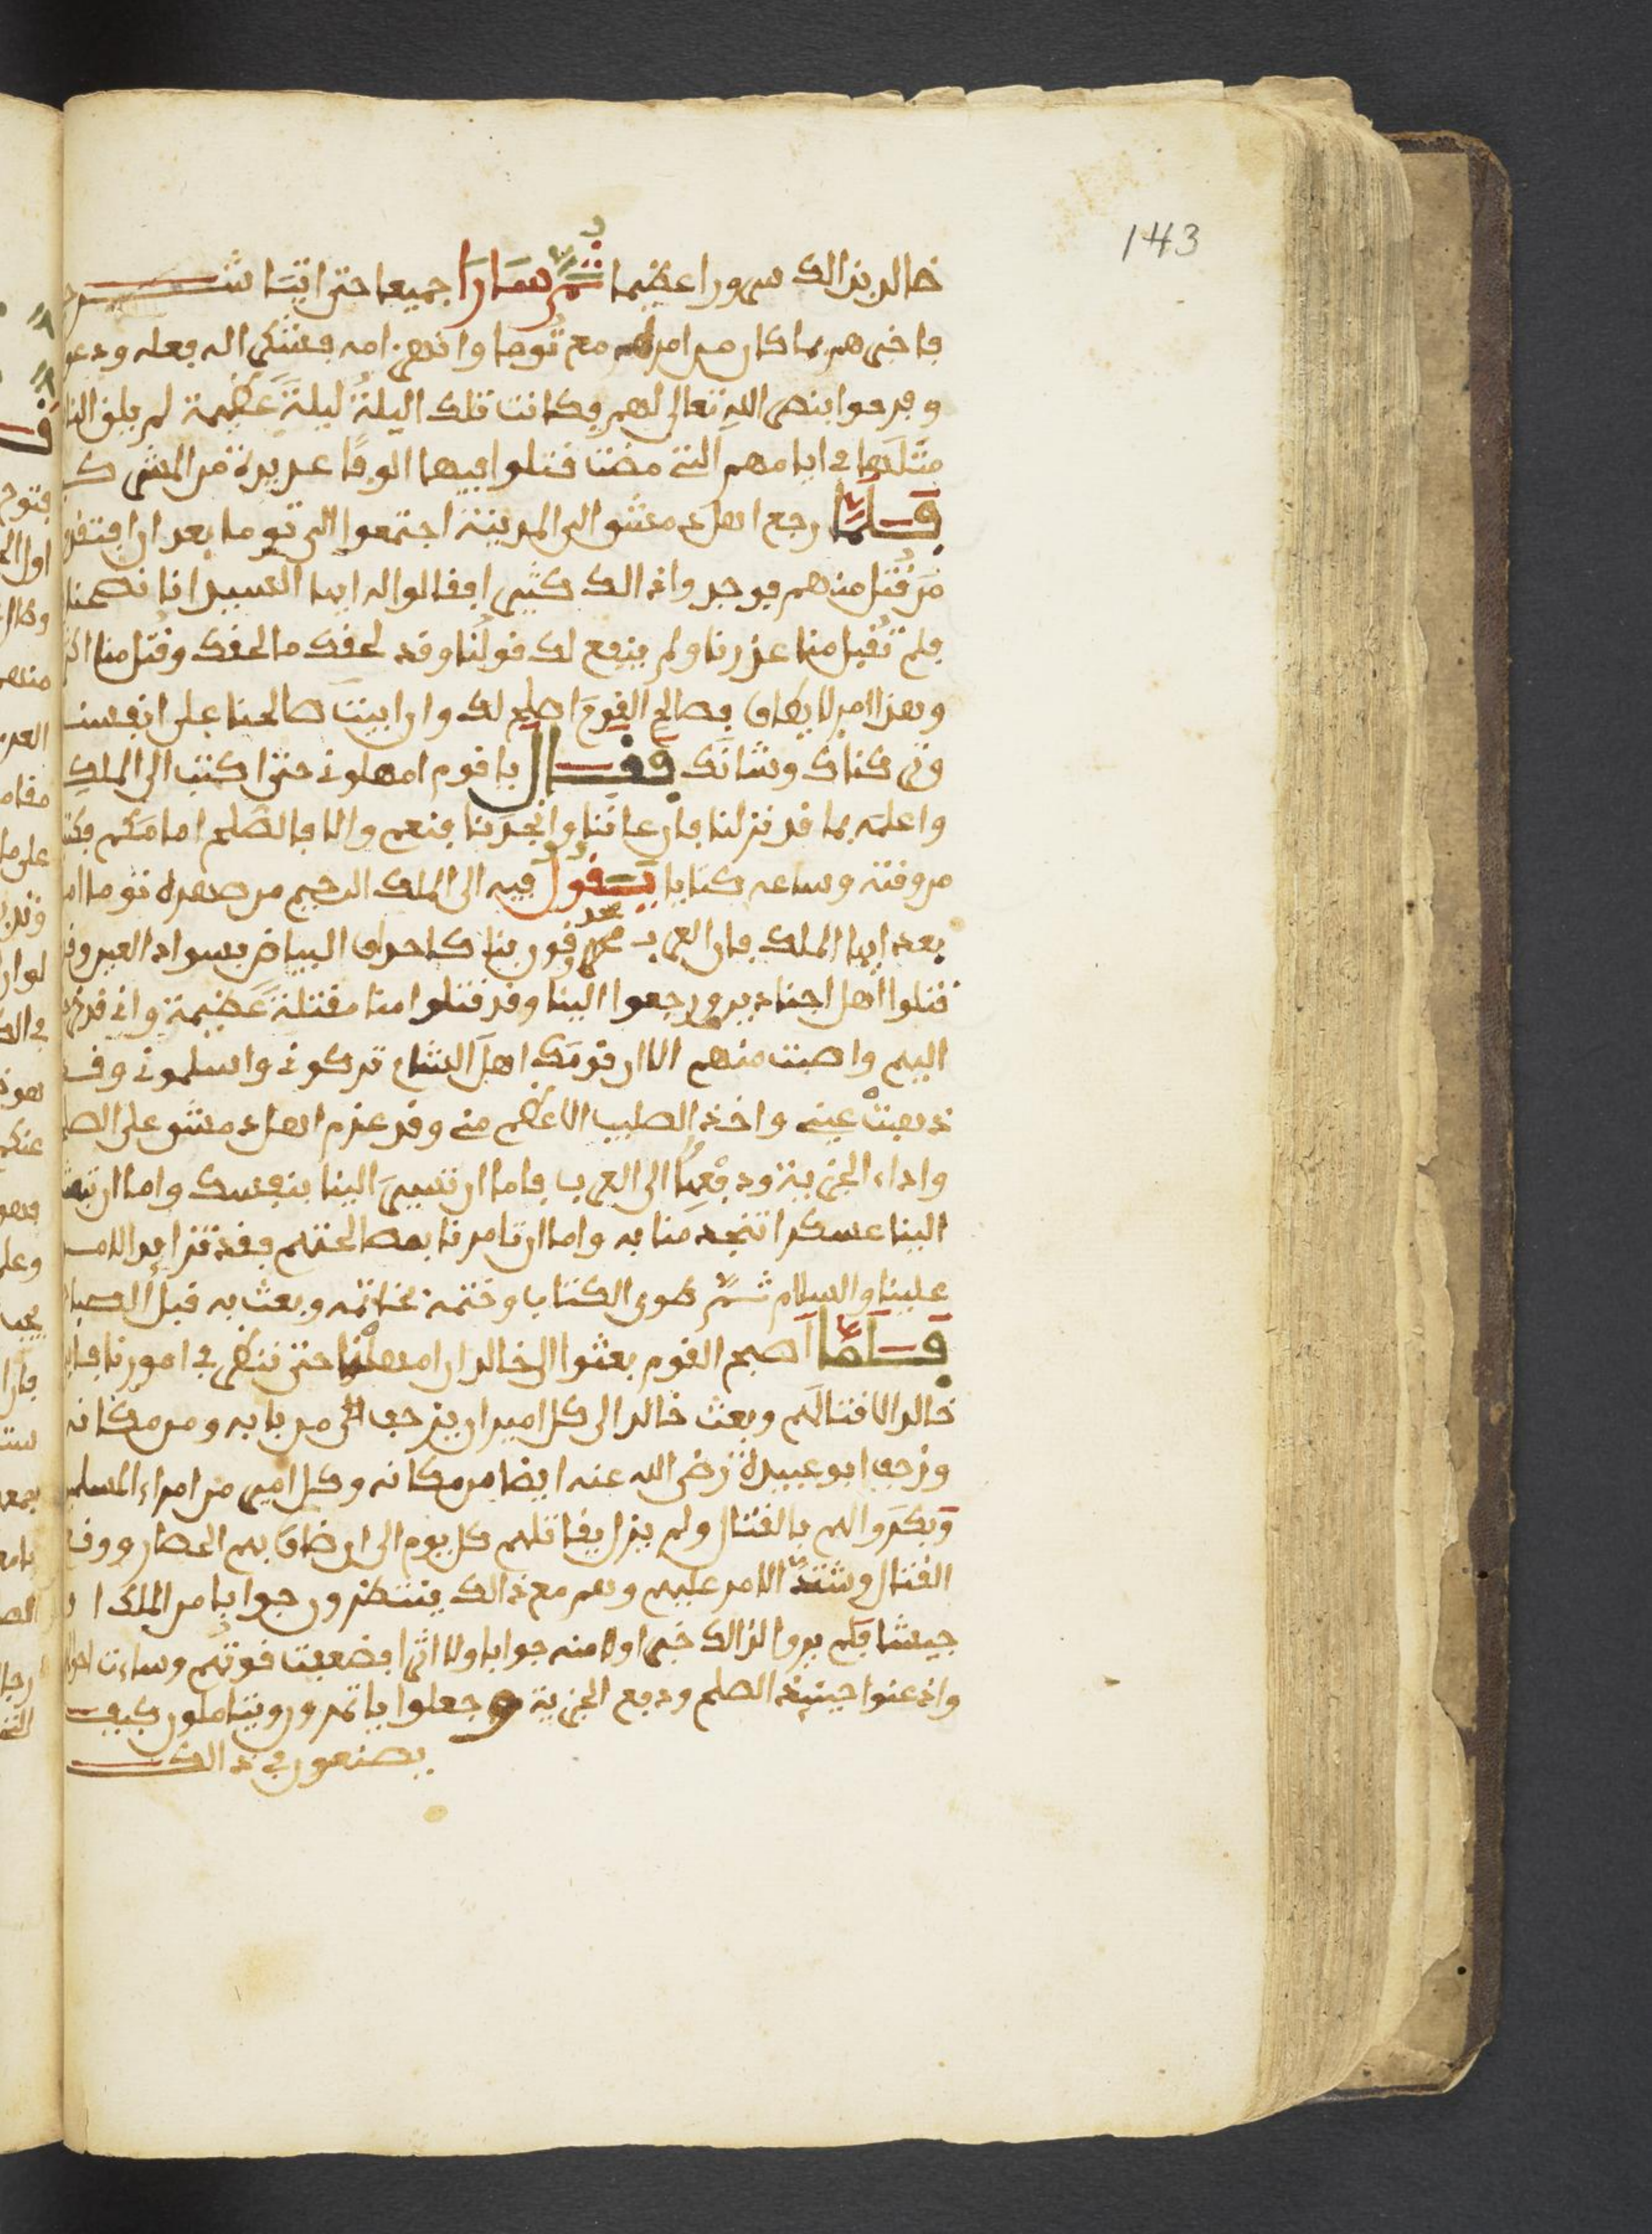 143
خالد بذالك سرورا عظيما ثم سارا جميعا حتى اتيا شر
فاخبرهم بما كان من امره مع توما وانهزامه فشكر اله فعله ودعو
وفرحوا بنصر الله تعالى لهم وكانت تلك اليلة ليلة عظيمة لم يلق النا
مثلها في ايامهم التي مضت قتلوا فيها الوفا عديدة من المشرك
فلما رجع اهل دمشق الى المدينة اجتمعوا الى توما بعد ان افتقد
من قتل منهم فوجدوا ذالك كثيرا فقالوا له ايها السيد انا نصحنا
فلم تقبل منا عذرنا ولم ينفع لك قولنا وقد لحقك ما لحقك وقتل منا اكثر
وهذا امر لا يطاق فصالح القوم اصلح لك وان ابيت صالحنا على انفسنا
وتركناك وشانك فقال يا قوم امهلوني حتى اكتب الى الملك
واعلمه بما قد نزل لنا فان عاننا وانجدنا فنعم والا فالصلح امامكم فكتب
من وقته وساعه كتابا يقول فيه الى الملك الرحيم من صهره توما اما
بعد ايها الملك فان العرب محدقون بنا كاحداق البياض بسواد العين وقد
قتلوا اهل اجنادين ورجعوا الينا وقد قتلوا منا مقتلة عظيمة واني قد خرجت
اليهم واصبت منهم الا ان قومك اهل الشام تركوني واسلموني وقد
ذهبت عيني واخذ الصليب الاعظم مني وقد عزم اهل دمشق على الصلح
واداء الجزية ودفعها الى العرب فاما ان تسير الينا بنفسك واما ان تبعث
الينا عسكرا تنجدنا به واما ان تامرنا بمصالحتهم فقد تزايد الامر
علينا والسلام ثم طوى الكتاب وختمه بخاتمه وبعث به قبل الصباح
فلما اصبح القوم بعثوا الى خالد ان امهلنا حتى ننظر في امورنا فابى
خالد الا قتالهم وبعث خالد الى كل امير ان يزحف من بابه ومن مكانه
وزحف ابو عبيدة رضي الله عنه ايضا من مكانه وكل امير من امراء المسلمين
وبكروا لهم بالقتال ولم يزل يقاتلهم كل يوم الى ان ضاق بهم الحصار ووقع
القتال وشتد الامر عليهم وهم مع ذالك ينتظرون جوابا من الملك او
جيشا فلم يروا لذالك خبرا ولا منه جوابا ولا اثرا فضعفت قوتهم وساءت احوالهم
واذعنوا حينئذ الصلح ودفع الجزية وجعلوا ياتمرون ويتاملون كيف
يصنعون في ذالك